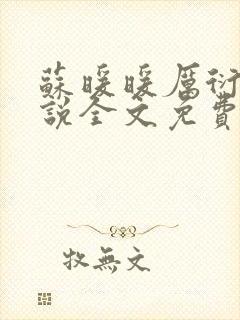 蘇暖暖厲衍
說全文免費
牧無文